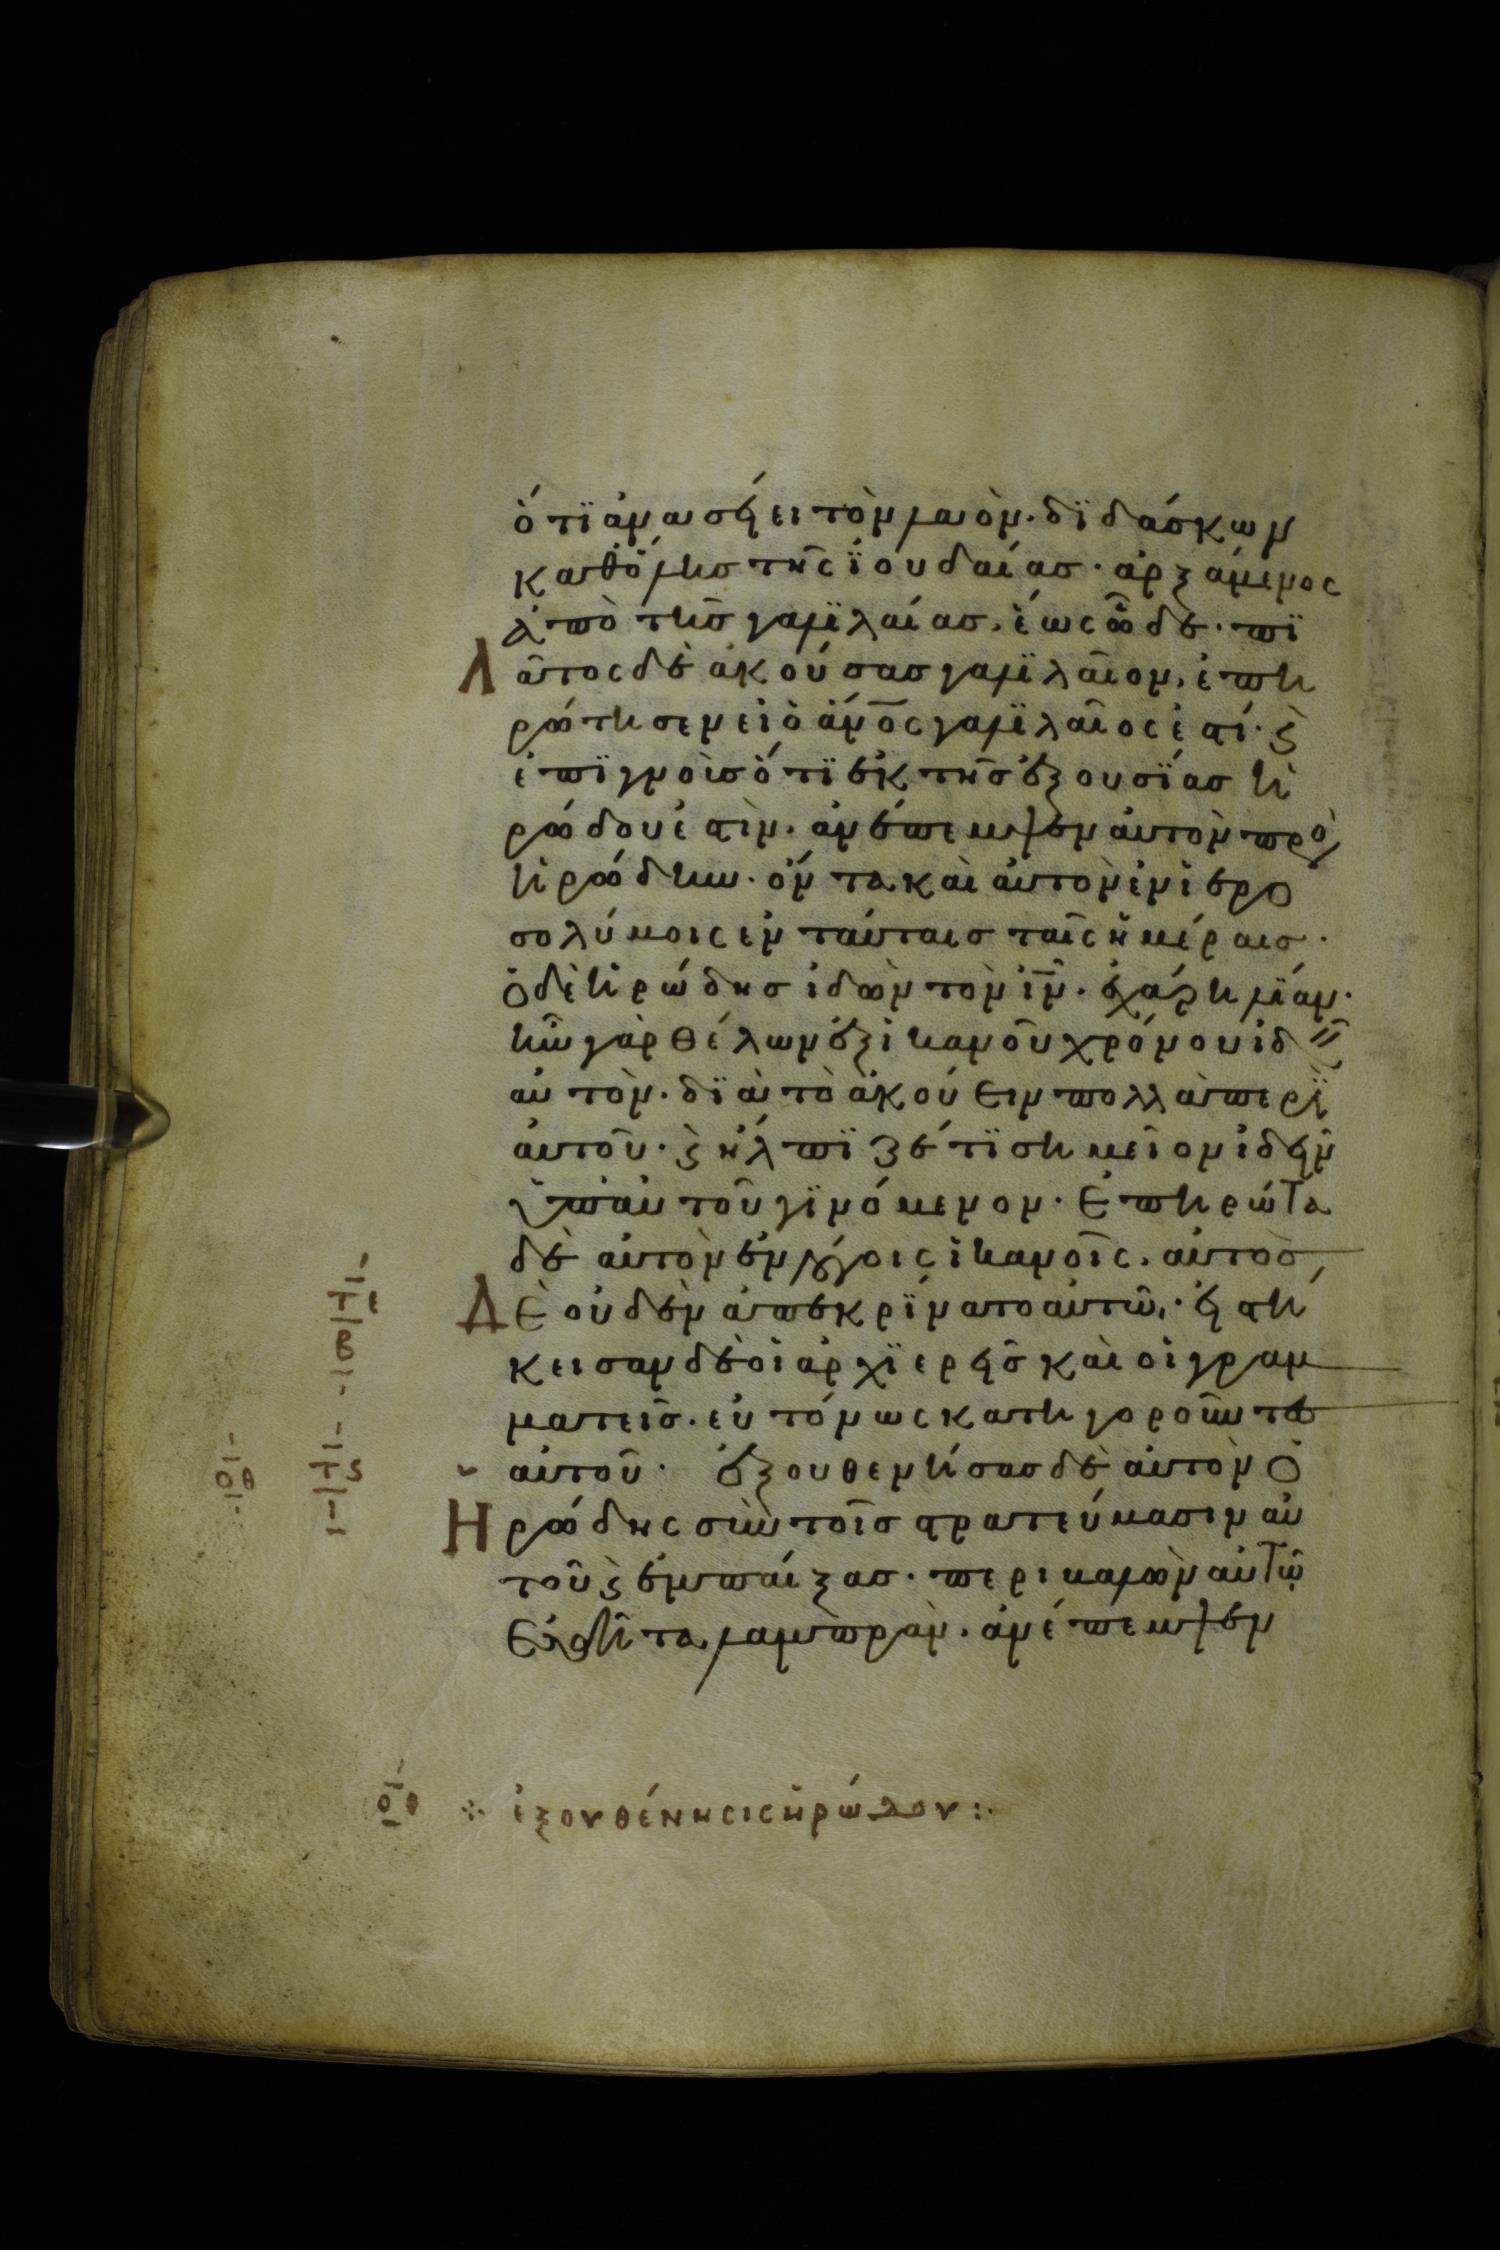 ὅτι ἀνασείει τὸν λαὸν· διδάσκων
καθόλης τῆς ἰουδαίας· ἀρξάμενος
ἀπὸ τῆς γαλϊλαίας, ἕως ὧδε· πϊ
Λᾶτος δὲ ἀκούσας γαλϊλαῖον, ἐπη
ρώτησεν εἰ ὁ ἄν̅ο̅ς γαλϊλαῖος ἐστί· ϛ̀
ἐπϊγνοὺς ὅτϊ ἐκ τῆς ἐξουσϊας ἡ
ρώδου ἐστὶν, ἀνέπεμψεν αὐτὸν πρὸς
ἡρώδην· ὄντα καὶ αὐτὸν ἐν ἱερο
σολύμοις ἐν ταύταις ταῖς ἡμέραις·
ὁ δὲ ἡρώδης ἰδὼν τὸν ἰ̅ν̅· ἐχάρη λϊαν·
ἦν γὰρ θέλων ἐξ ἱκανοῦ χρόνου ἰδεῖν
αὐτὸν· δϊὰ τὸ ἀκούειν πολλὰ περὶ
αὐτοῦ· ϛ̀ ἤλπϊζέ τϊ σημεῖον ἰδεῖν
ὑπ αὐτοῦ γϊνόμενον· Ἐπηρώτα
δὲ αὐτὸν ἐν λόγοις ἱκανοῖς, αὐτὸς
Δὲ οὐδὲν ἀπεκρϊνατο αὐτῶ· εἱστή
κεισαν δὲ οἱ ἀρχϊερεῖς καὶ οἱ γραμ
ματεῖς· εὐτόνως κατηγοροῦντες
αὐτοῦ· ἐξουθενήσας δὲ αὐτὸν ὁ
Ἡρώδης σὺν τοῖς στρατεύμασιν αὐ
τοῦ ϛ̀ ἐμπαίξας· περιβαλὼν αὐτῶ
Ἐσθῆτα λαμπρὰν· ἀνέπεμψεν
τε
β
ι
οθ
τϛ
ι
οθ ἐξουθένησις ἡρώδου:·